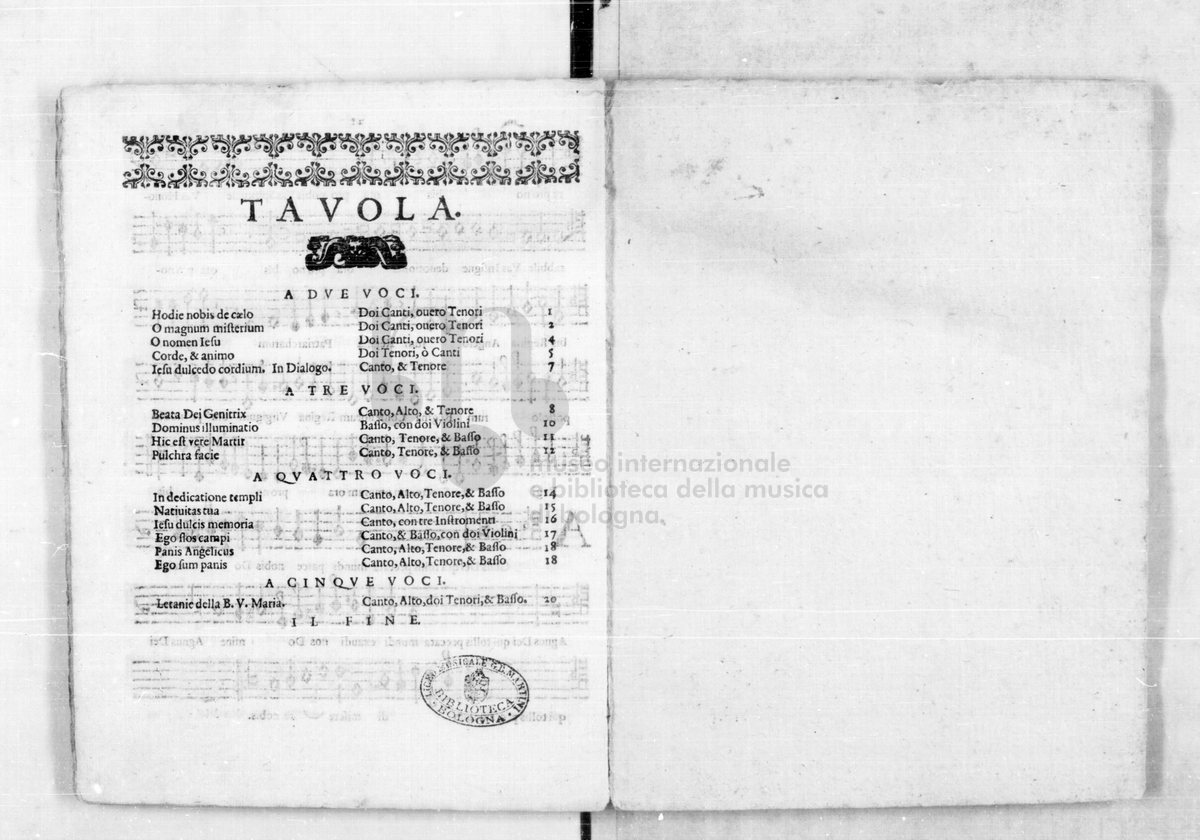 TAVOLA.
A DVE VOCI.
Hodie nobis de cælo Doi Canti, ouero Tenori 1
O magnum misterium Doi Canti, ouero Tenori 2
O nomen Iesu Doi Canti, ouero Tenori 4
Corde, & animo Doi Tenori, ò Canti 5
Iesu dulcedo cordium. In Dialogo. Canto, & Tenore 7
A TRE VOCI.
Beata Dei Genitrix Canto, Alto, & Tenore 8
Dominus illuminatio Basso, con doi Violini 10
Hic est vere Martir Canto, Tenore, & Basso 11
Pulchra facie Canto, Tenore, & Basso 12
A QVATTRO VOCI.
In dedicatione templi Canto, Alto, Tenore, & Basso 14
Natiuitas tua Canto, Alto, Tenore, & Basso 15
Iesu dulcis memoria Canto, con tre Instromenti 16
Ego flos campi Canto, & Basso, con doi Violini 17
Panis Angelicus Canto, Alto, Tenore, & Basso 18
Ego sum panis Canto, Alto, Tenore, & Basso 18
A CINQVE VOCI.
Letanie della B. V. Maria. Canto, Alto, doi Tenori, & Basso. 20
IL FINE.
LICEO MUSICALE G.B. MARTINI
BIBLIOTECA
BOLOGNA
museo internazionale
e biblioteca della musica
di bologna